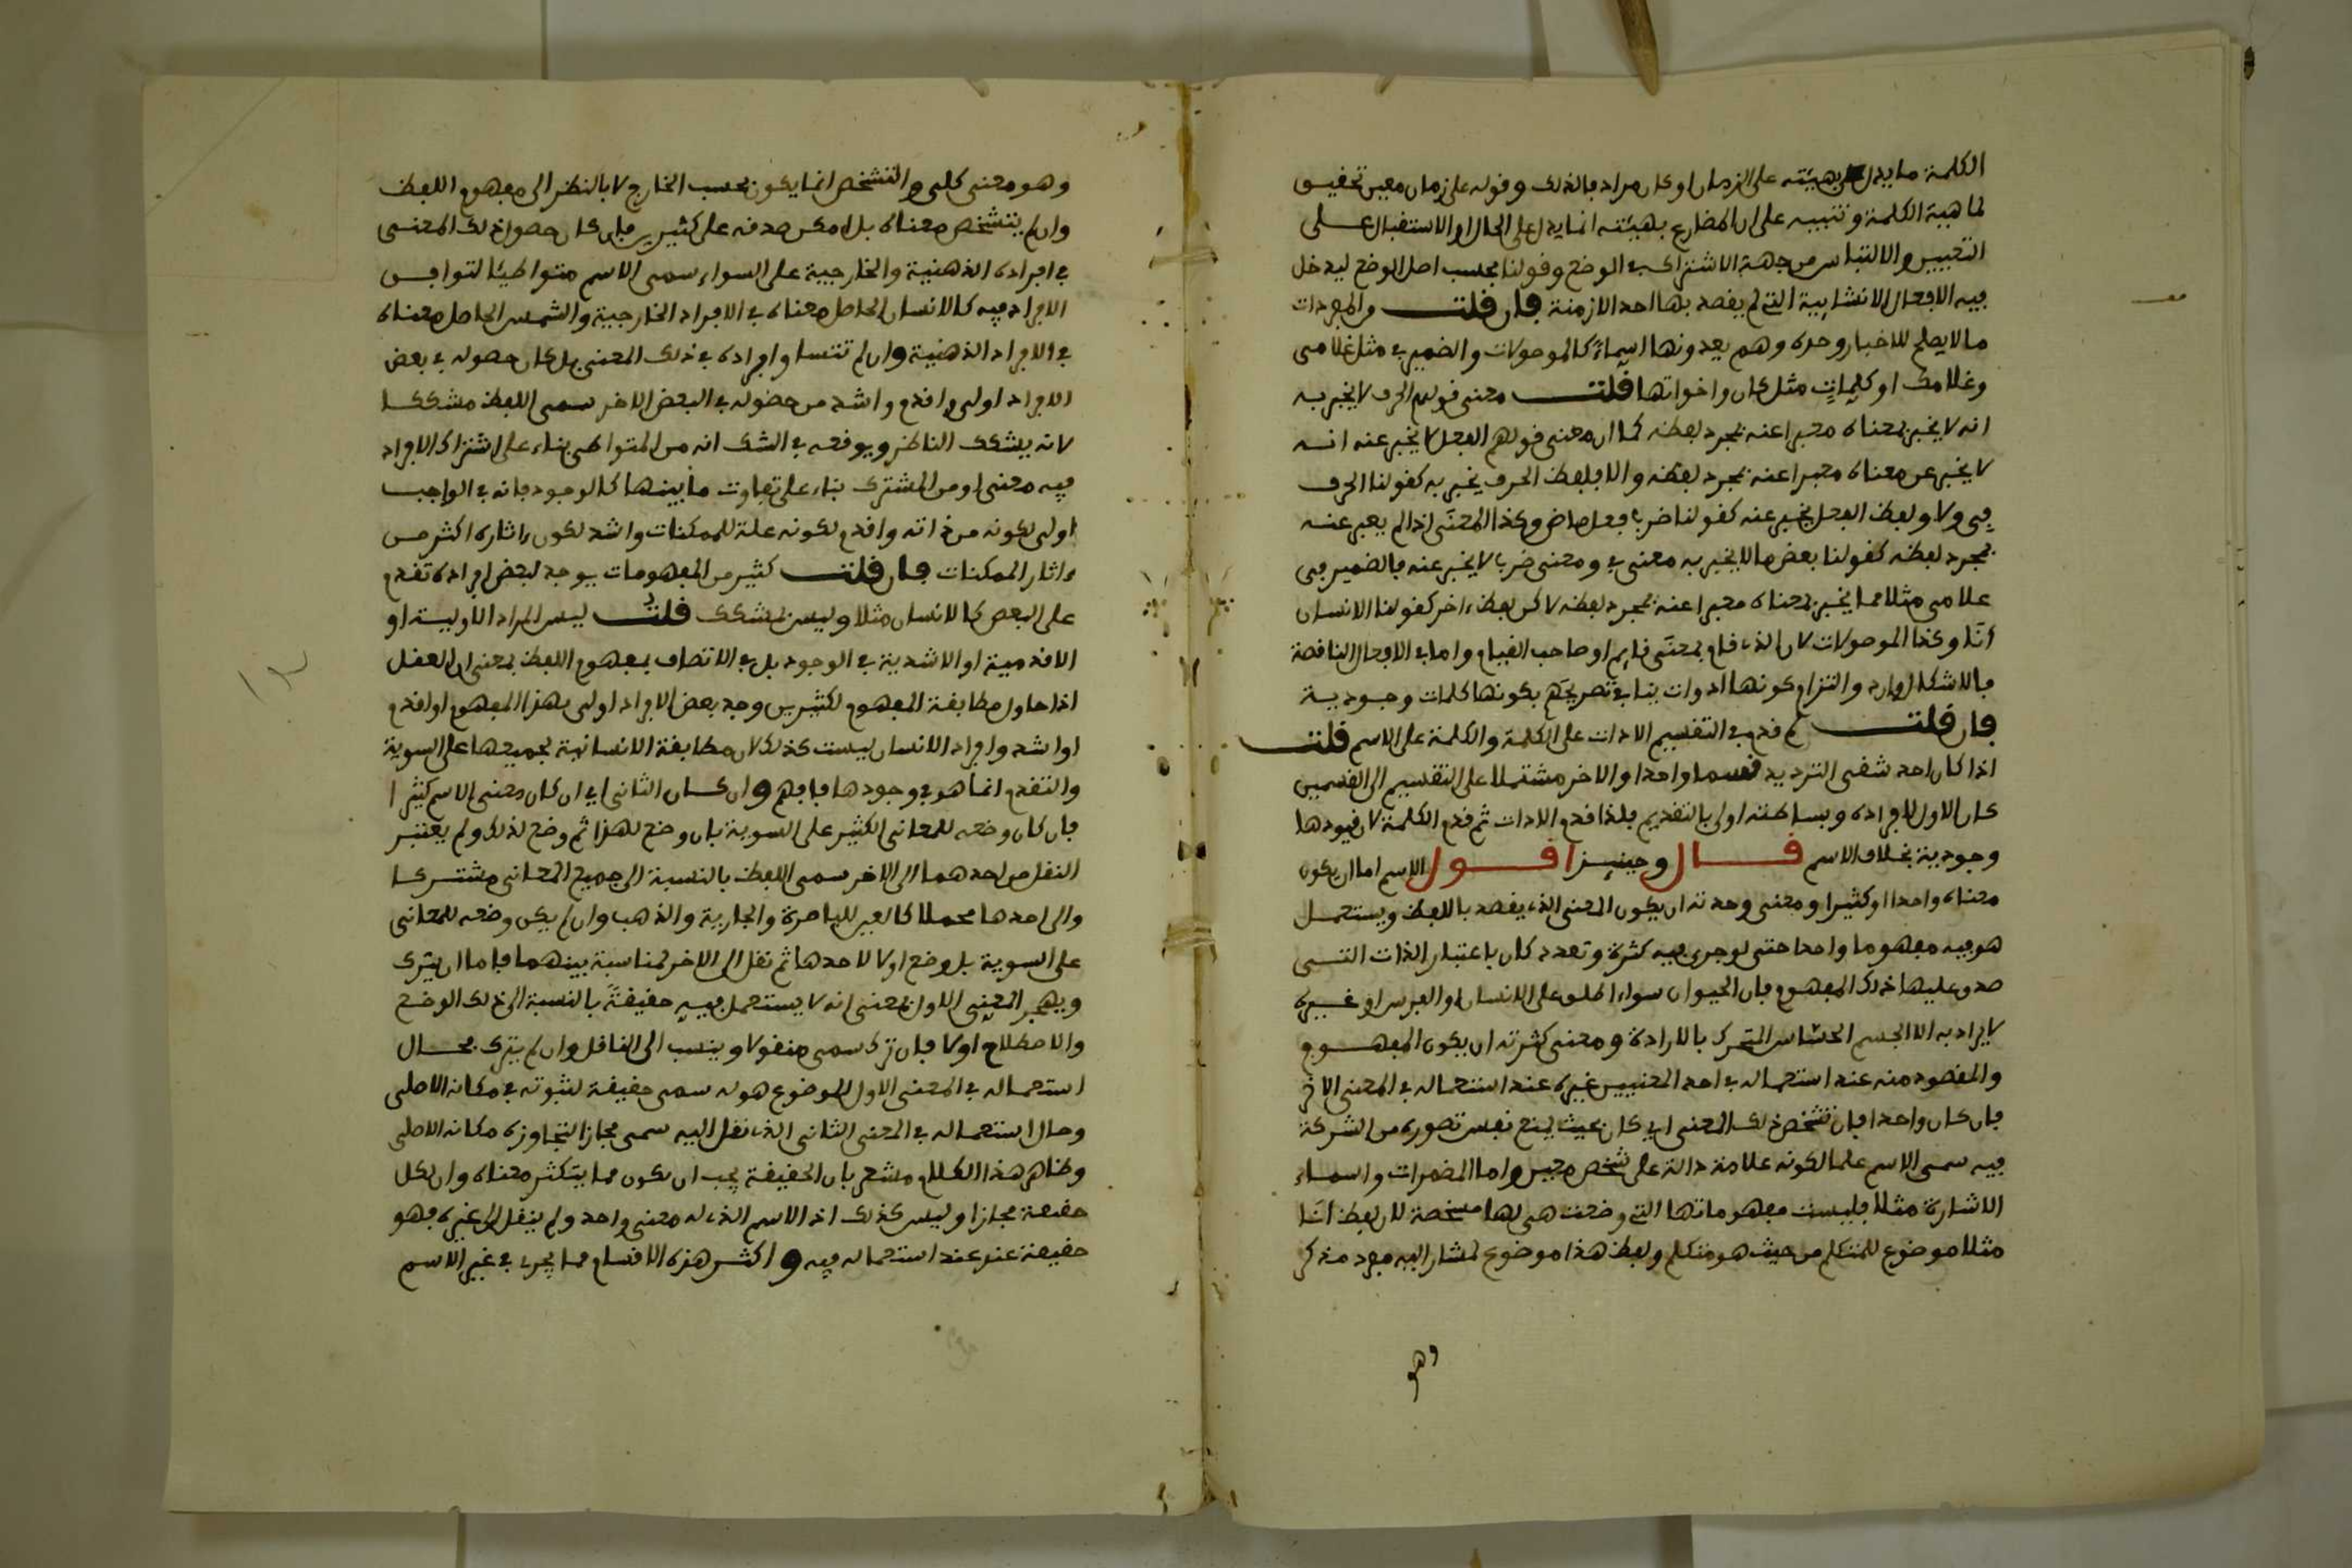 الكلمة ما يدل بهيئته على الزمان وكان مراده بالذلك وقوله على زمان معين تحقيق
لماهية الكلمة وتنبيه على ان المضارع بهيئته انما يدل على الحال او الاستقبال على
التعيين والالتباس من جهة الاشتراك في الوضع وقولنا بحسب اصل الوضع ليدخل
فيه الافعال الانشايية التي لم يقصد بها احد الازمنة فان قلت من المفردات
ما لا يصلح للاخبار وحده وهم يعدونها اسماءً كالموصولات والضمير في مثل غلامى
وغلامك او كلماتٍ مثل كان واخواتها قلت معنى قولهم الحرف لا يخبر به
انه لا يخبر بمعناه معبرا عنه بمجرد لفظه كما ان معنى قولهم الفعل لا يخبر عنه انه
لا يخبر عن معناه معبرا عنه بمجرد لفظه والا فلفظ الحرف يخبر به كقولنا الحرف
في ولا ولفظ الفعل يخبر عنه كقولنا ضرب فعل ماض وكذا المعنى اذا لم يعبر عنه
بمجرد لفظه كقولنا بعض ما لا يخبر به معنى في ومعنى ضرب لا يخبر عنه فالضمير في
غلامى مثلا مما يخبر بمعناه معبرا عنه بمجرد لفظه لاكن بلفظ ءاخر كقولنا الانسان
انَا وكذا الموصولات لان الذي قام بمعنَى قايم او صاحب القيام واما في الافعال الناقصة
فالاشكال وارد والتزام كونها ادوات ينافي تصريحهم بكونها كلمات وجودية
فان قلت لم قدم في التقسيم الادات على الكلمة والكلمة على الاسم قلت
اذا كان احد شقى الترديد قسما واحدا والاخر مشتملا على التقسيم الى القسمين
كان الاول لافراده وبساطته اولى بالتقديم فلذا قدم الادات ثم قدم الكلمة لان قيودها
وجودية بخلاف الاسم قال وحينيذ اقول الاسم اما ان يكون
معناه واحدا او كثيرا ومعنى وحدته ان يكون المعنى الذي يقصد باللفظ ويستعمل
هو فيه مفهوما واحدا حتى لو جرى فيه كثرة وتعدد كان باعتبار الذات التى
صدق عليها ذلك المفهوم فان الحيوان سواء اطلق على الانسان او الفرس او غيره
لا يراد به الا الجسم الحساس المتحرك بالارادة ومعنى كثرته ان يكون المفهوم
والمقصود منه عند استعماله في احد المعنيين غيره عند استعماله في المعنى الاخر
فان كان واحدا فان تشخص ذلك المعنى اي كان بحيث يمنع نفس تصوره من الشركة
فيه سمى الاسم علما لكونه علامة دالة على شخص معين واما المضمرات واسماء
الاشارة مثلا فليست مفهوماتها التي وضعت هى لها مشخصة لان لفظ انَا
مثلا موضوع للمتكلم من حيث هو متكلم ولفظ هذا موضوع لمشار اليه مفرد مذكر
وهو
وهو معنى كلى والتشخص انما يكون بحسب الخارج لا بالنظر الى مفهوم اللفظ
وان لم يتشخص معناه بل امكن صدقه على كثيرين فان كان حصول ذلك المعنى
في افراده الذهنية والخارجية على السواء سمى الاسم متواطيًا لتوافق
الافراد فيه كالانسان الحاصل معناه في الافراد الخارجية والشمس الحاصل معناه
في الافراد الذهنية وان لم تتساو افراده في ذلك المعنى بل كان حصوله في بعض
الافراد اولى واقدم واشد من حصوله في البعض الاخر سمى اللفظ مشككا
لانه يشكك الناظر ويوقعه في الشك انه من المتواطى بناء على اشتراك الافراد
فيه معنى او من المشترك بناء على تفاوت ما بينها كالوجود فانه في الواجب
اولى لكونه من ذاته واقدم لكونه علة للممكنات واشد لكون ءاثاره اكثر من
ءاثار الممكنات فان قلت كثير من المفهومات يوجد لبعض افراده تقدم
على البعض كالانسان مثلا وليس بمشكك قلت ليس المراد الاولية او
الاقدمية او الاشدية في الوجود بل في الاتصاف بمفهوم اللفظ بمعنى ان العقل
اذا حاول مطابقة المفهوم لكثيرين وجد بعض الافراد اولى بهذا المفهوم او اقدم
او اشد وافراد الانسان ليست كذلك لان مطابقة الانسانية لجميعها على السوية
والتقدم انما هو في وجودها فافهم وان كان الثانى اي ان كان معنى الاسم كثيرا
فان كان وضعه للمعانى الكثير على السوية بان وضع لهذا ثم وضع لذلك ولم يعتبر
النقل من احدهما الى الاخر سمى اللفظ بالنسبة الى جميع المعانى مشتركا
والى احدها مجملا كالعين للباصرة والجارية والذهب وان لم يكن وضعه للمعانى
على السوية بل وضع اولا لاحدها ثم نقل الى الاخر لمناسبة بينهما فاما ان يترك
ويهجر المعنى الاول بمعنى انه لا يستعمل فيه حقيقةً بالنسبة الى ذلك الوضع
والاصطلاح اولا فان ترك سمى منقولا وينسب الى الناقل وان لم يترك فحال
استعماله في المعنى الاول الموضوع هو له سمى حقيقة لثبوته في مكانه الاصلى
وحال استعماله في المعنى الثانى الذي نقل اليه سمى مجازا لتجاوزه مكانه الاصلى
وظاهر هذا الكلام مشعر بان الحقيقة يجب ان يكون مما يتكثر معناه وان لكل
حقيقة مجازا وليس كذلك اذ الاسم الذي له معنى واحد ولم ينقل الى غيره فهو
حقيقة عند استعماله فيه واكثر هذه الاقسام مما يجري في غير الاسم